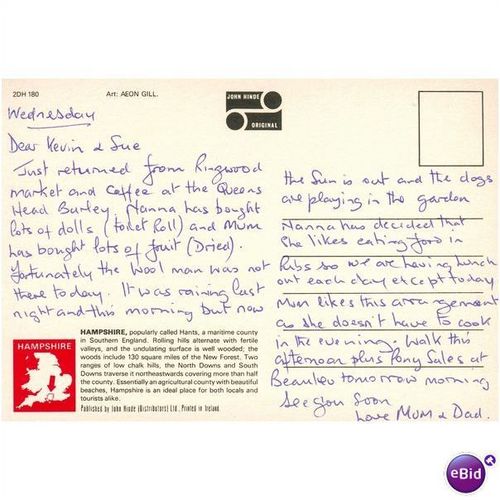 2DH 180
Art: AEON GILL.
JOHN HINDE
ORIGINAL
Wednesday
Dear Kevin & Sue
Just returned from Ringwood
market and coffee at the Queens
Head Burley. Nanna has bought
lots of dolls (toilet Roll) and Mum
has bought lots of fruit (Dried).
Fortunately the Wool man was not
there today. It was raining last
night and this morning but now
the sun is out and the dogs
are playing in the garden
Nanna has decided that
she likes eating food in
Pubs so we are having lunch
out each day except today
Mum likes this arrangement
as she doesn't have to cook
in the evening. Walk this
afternoon plus Pony Sales at
Beaulieu tomorrow morning
See you soon
Love MUM & Dad.
HAMPSHIRE
HAMPSHIRE, popularly called Hants, a maritime county
in Southern England. Rolling hills alternate with fertile
valleys, and the undulating surface is well wooded; the
woods include 130 square miles of the New Forest. Two
ranges of low chalk hills, the North Downs and South
Downs traverse it northeastwards covering more than half
the county. Essentially an agricultural county with beautiful
beaches, Hampshire is an ideal place for both locals and
tourists alike.
Published by John Hinde (Distributors) Ltd., Printed in Ireland.
eBid